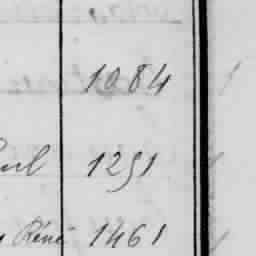 1084
1251
René 1461